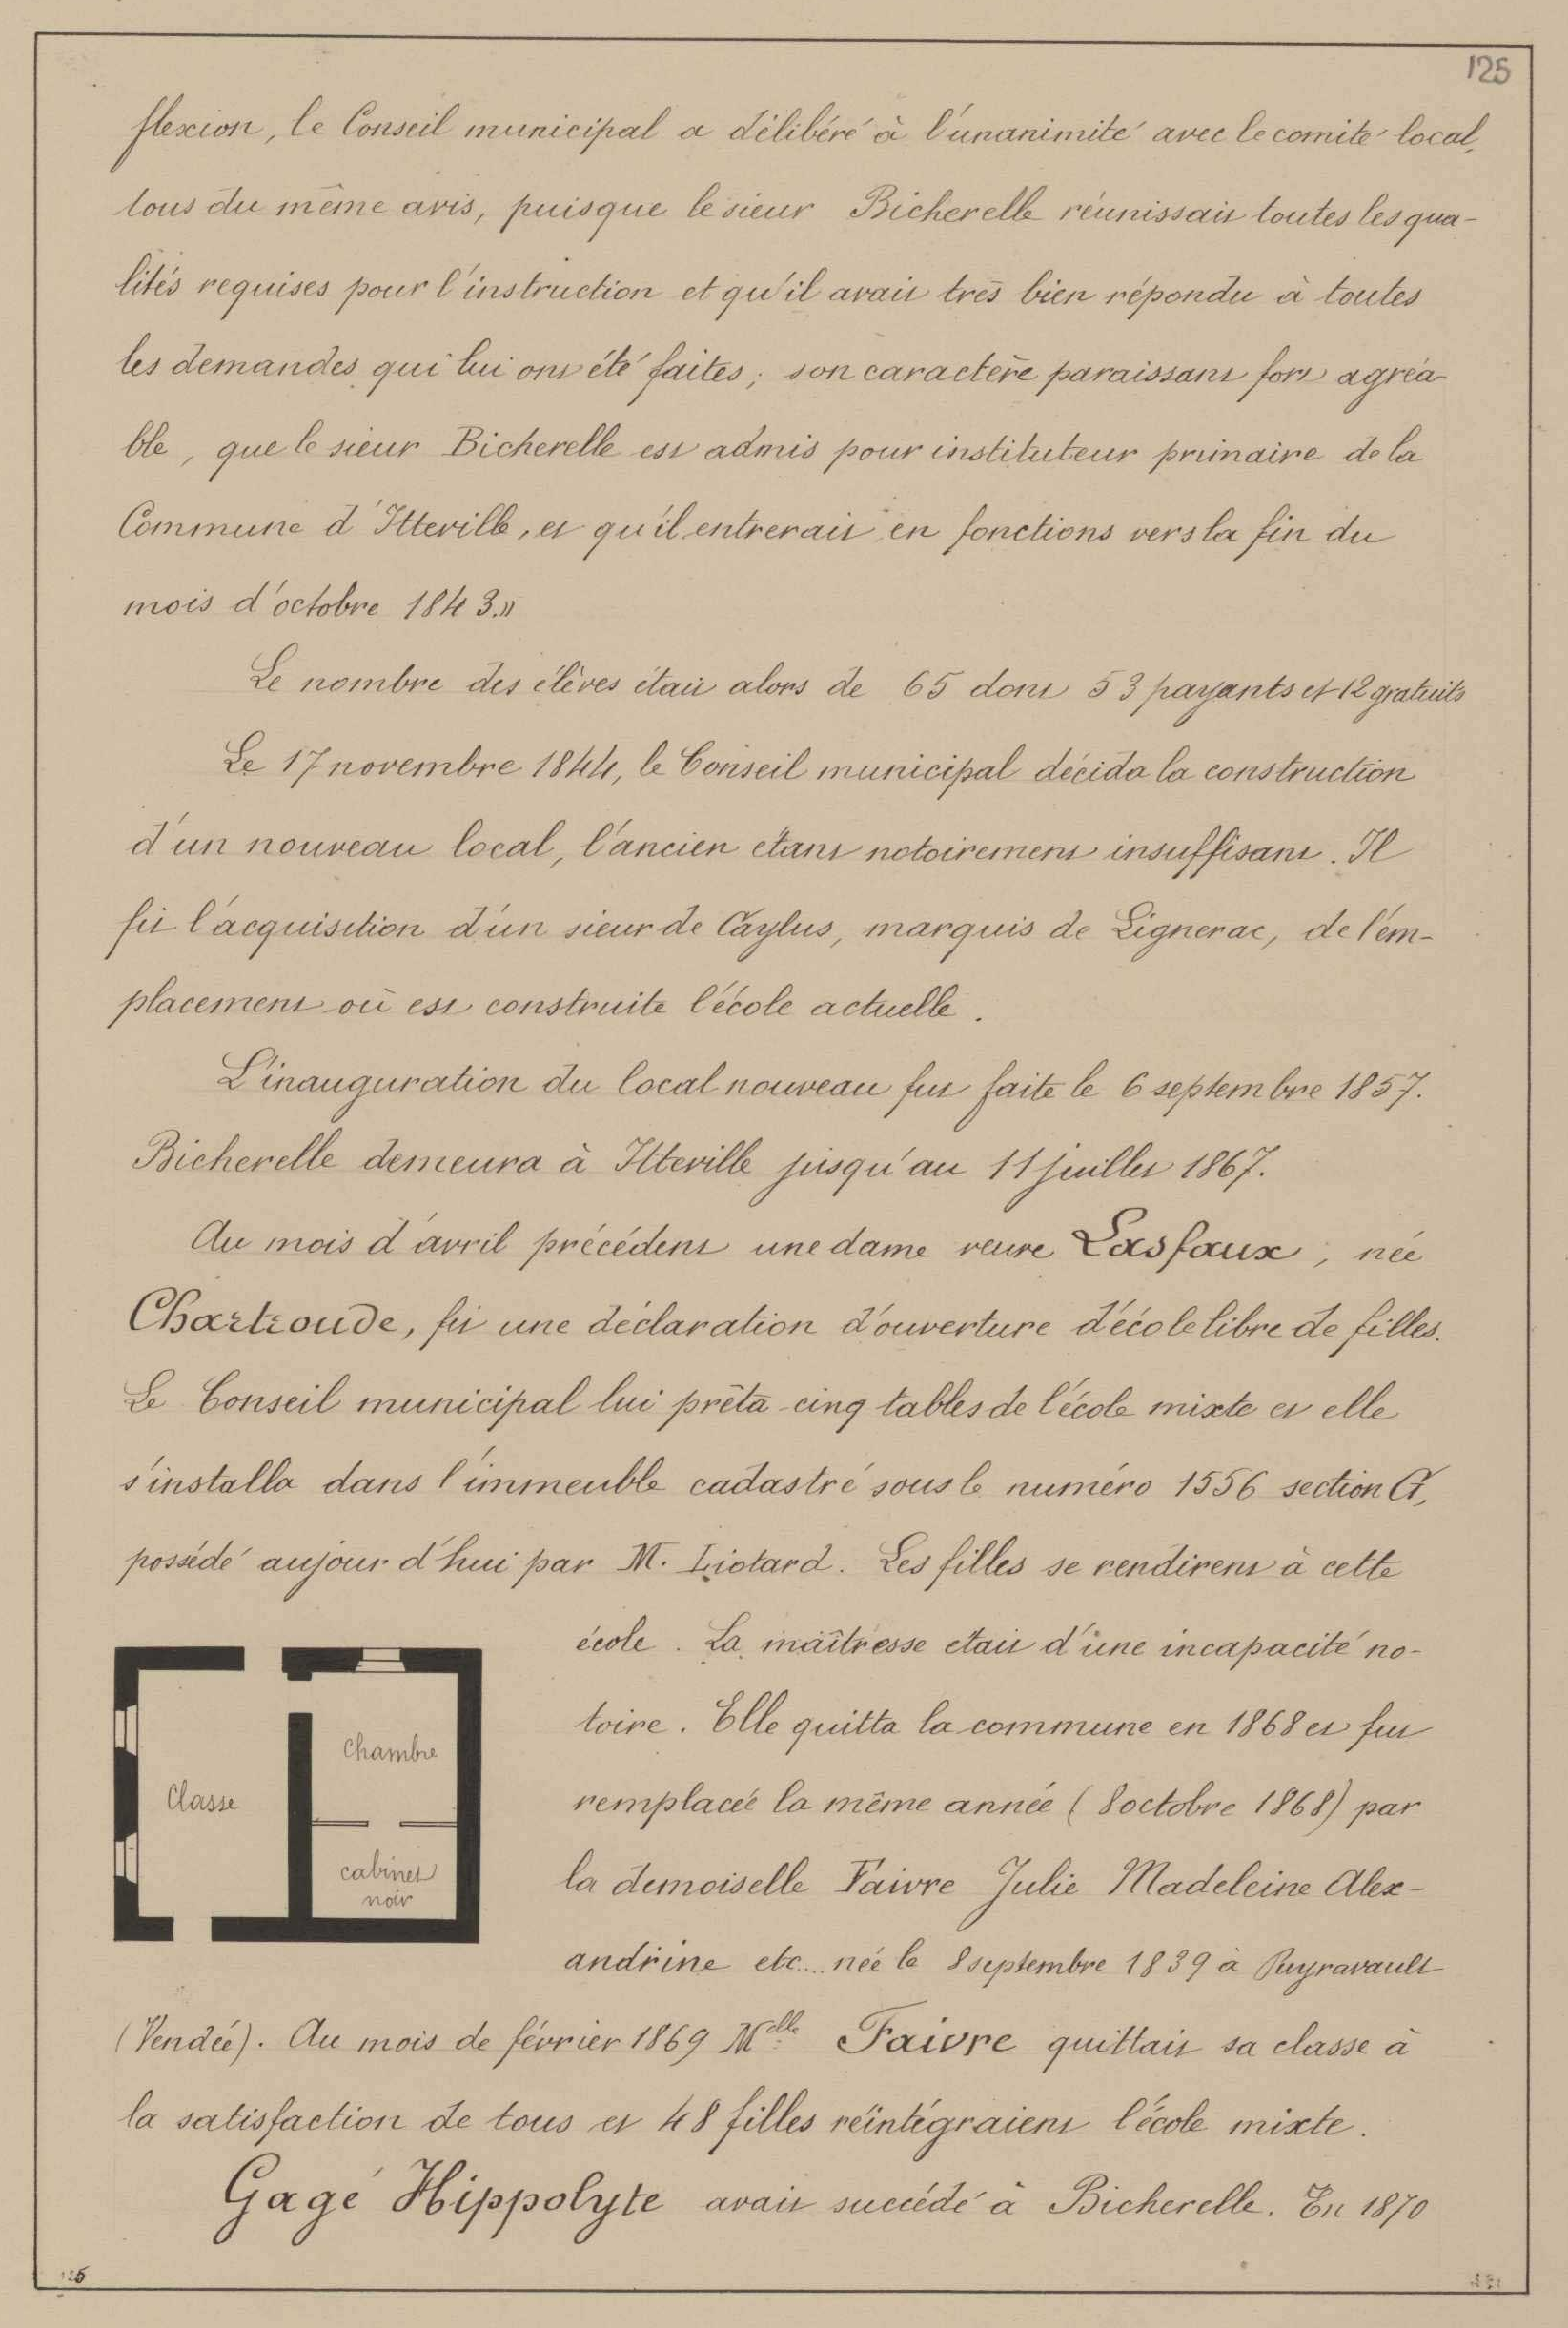 125
flexion, le Conseil municipal a délibéré à l'unanimité avec le comité local,
tous du même avis, puisque le sieur Bicherelle réunissait toutes les qua-
lités requises pour l'instruction et qu'il avait très bien répondu à toutes
les demandes qui lui ont été faites; son caractère paraissant fort agréa-
ble, que le sieur Bicherelle est admis pour instituteur primaire de la
Commune d'Itteville, et qu'il entrerait en fonctions vers la fin du
mois d'octobre 1843.»
Le nombre des élèves était alors de 65 dont 53 payants et 12 gratuits
Le 17 novembre 1844, le Conseil municipal décida la construction
d'un nouveau local, l'ancien étant notoirement insuffisant. Il
fit l'acquisition d'un sieur de Caylus, marquis de Lignerac, de l'em-
placement où est construite l'école actuelle.
L'inauguration du local nouveau fut faite le 6 septembre 1857.
Bicherelle demeura à Itteville jusqu'au 11 juillet 1867.
Au mois d'avril précédent une dame veuve Lasfaux, née
Chartroude, fit une déclaration d'ouverture d'école libre de filles.
Le Conseil municipal lui prêta cinq tables de l'école mixte et elle
s'installa dans l'immeuble cadastré sous le numéro 1556 section A,
possédé aujourd'hui par M. Liotard. Les filles se rendirent à cette
école. La maîtresse etait d'une incapacité no-
toire. Elle quitta la commune en 1868 et fut
remplacée la même année (8 octobre 1868) par
la demoiselle Faivre Julie Madeleine Alex-
andrine etc... née le 8 septembre 1839 à Puyravault
Classe
Chambre
cabinet
noir
(Vendée). Au mois de février 1869 Melle Faivre quittait sa classe à
la satisfaction de tous et 48 filles réintégraient l'école mixte.
Gagé Hippolyte avait succédé à Bicherelle. En 1870
125